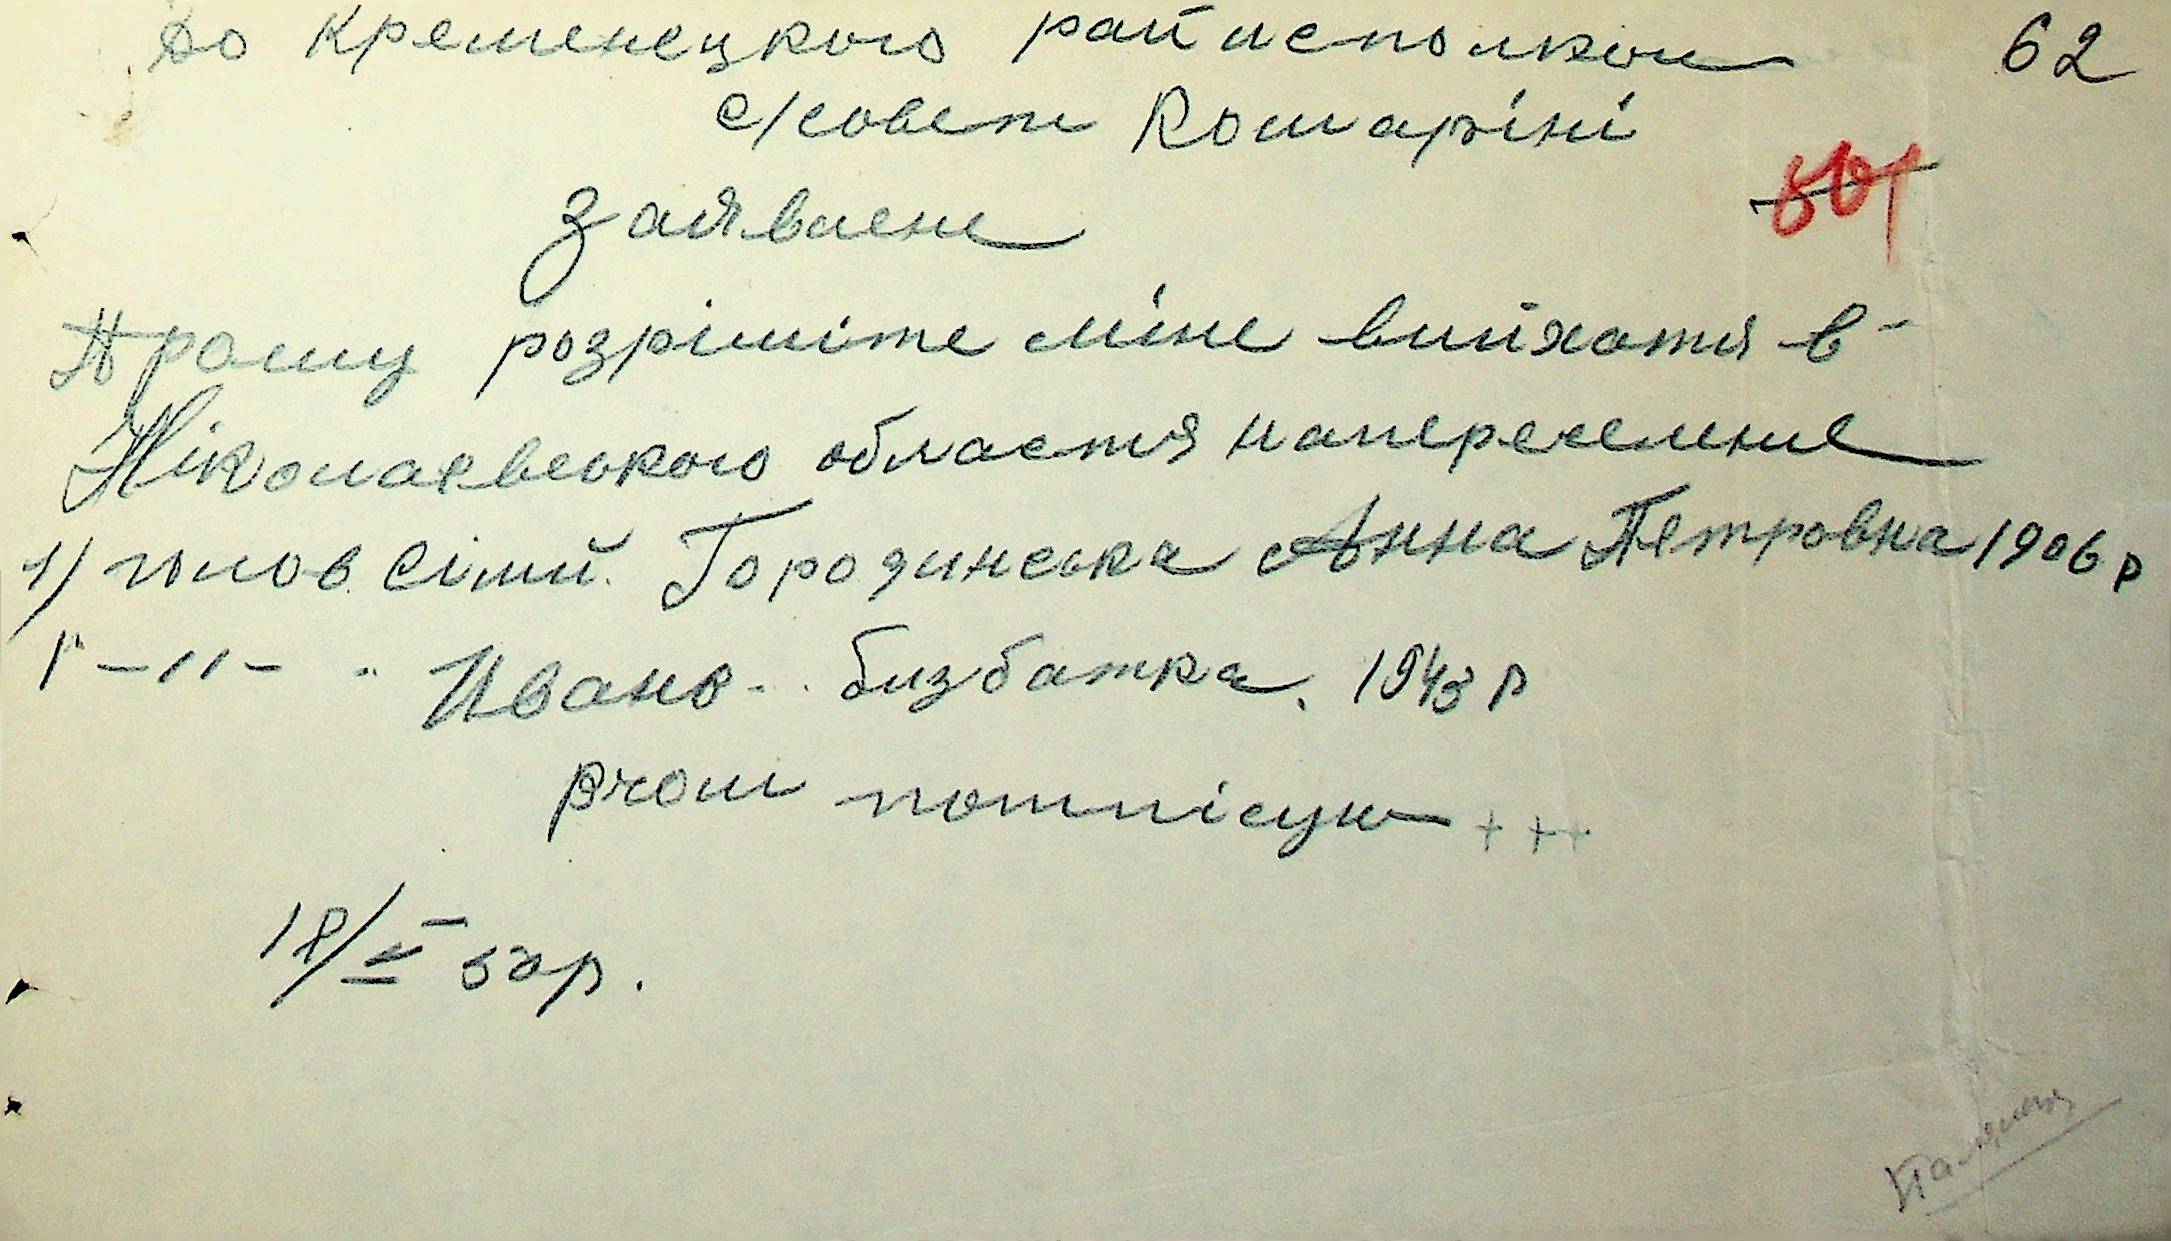 до Кременецкого райисполком 62
с/совет Комаріні
заявлене
Прошу розрішіте міне виїхатя в-
Ніколаєвського областя напереселение
1) голов сімй. Городинська Анна Пятровна 1906 р
1 -//- Иванк .. бизбатка. 1943 р
вчом потпісую +++
18/V 52р.